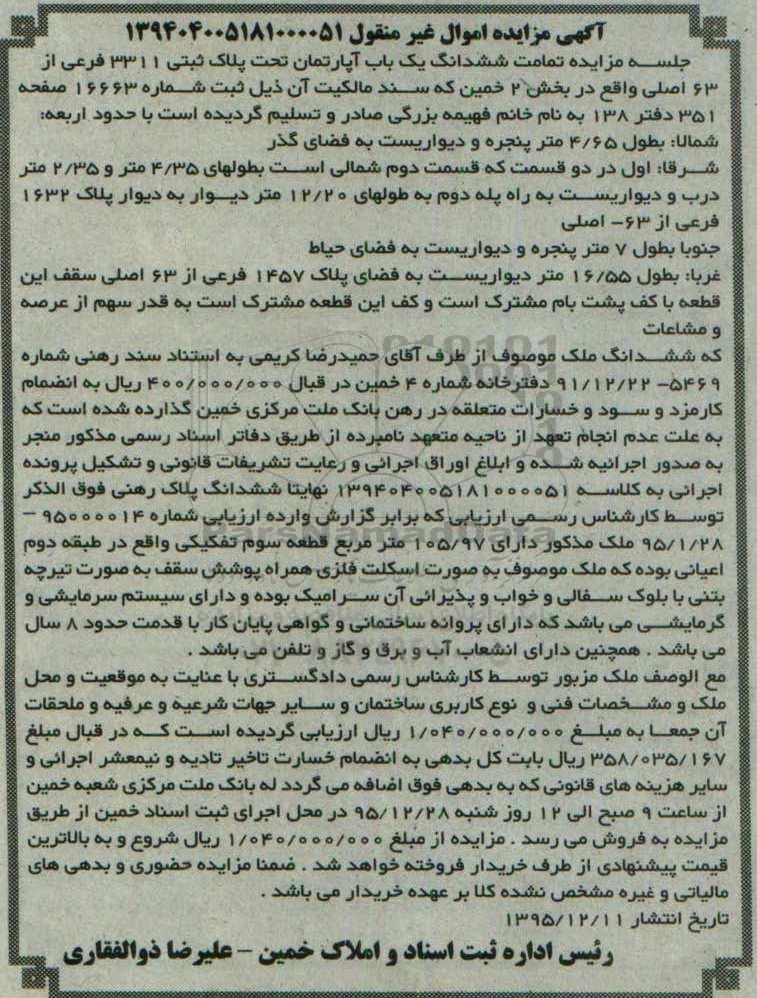 آگهی مزایده اموال غیر منقول ۱۳۹۴۰۴۰۰۵۱۸۱۰۰۰۰۵۱
جلسه مزایده تمامت ششدانگ یک باب آپارتمان تحت پلاک ثبتی ۳۳۱۱ فرعی از
۶۳ اصلی واقع در بخش ۲ خمین که سند مالکیت آن ذیل ثبت شماره ۱۶۶۶۳ صفحه
۳۵۱ دفتر ۱۳۸ به نام خانم فهیمه بزرگی صادر و تسلیم گردیده است با حدود اربعه:
شمالا: بطول ۴/۶۵ متر پنجره و دیواریست به فضای گذر
شرقا: اول در دو قسمت که قسمت دوم شمالی است بطولهای ۴/۳۵ متر و ۲/۳۵ متر
درب و دیواریست به راه پله دوم به طولهای ۱۲/۲۰ متر دیوار به دیوار پلاک ۱۶۳۲
فرعی از ۶۳- اصلی
جنوبا بطول ۷ متر پنجره و دیواریست به فضای حیاط
غربا: بطول ۱۶/۵۵ متر دیواریست به فضای پلاک ۱۴۵۷ فرعی از ۶۳ اصلی سقف این
قطعه با کف پشت بام مشترک است و کف این قطعه مشترک است به قدر سهم از عرصه
و مشاعات
که ششدانگ ملک موصوف از طرف آقای حمیدرضا کریمی به استناد سند رهنی شماره
۵۴۶۹- ۹۱/۱۲/۲۲ دفترخانه شماره ۴ خمین در قبال ۴۰۰/۰۰۰/۰۰۰ ریال به انضمام
کارمزد و سود و خسارات متعلقه در رهن بانک ملت مرکزی خمین گذارده شده است که
به علت عدم انجام تعهد از ناحیه متعهد نامبرده از طریق دفاتر اسناد رسمی مذکور منجر
به صدور اجرائیه شده و ابلاغ اوراق اجرائی و رعایت تشریفات قانونی و تشکیل پرونده
اجرائی به کلاسه ۱۳۹۴۰۴۰۰۵۱۸۱۰۰۰۰۵۱ نهایتا ششدانگ پلاک رهنی فوق الذکر
توسط کارشناس رسمی ارزیابی که برابر گزارش وارده ارزیابی شماره ۹۵۰۰۰۰۱۴ –
۹۵/۱/۲۸ ملک مذکور دارای ۱۰۵/۹۷ متر مربع قطعه سوم تفکیکی واقع در طبقه دوم
اعیانی بوده که ملک موصوف به صورت اسکلت فلزی همراه پوشش سقف به صورت تیرچه
بتنی با بلوک سفالی و خواب و پذیرائی آن سرامیک بوده و دارای سیستم سرمایشی و
گرمایشی می باشد که دارای پروانه ساختمانی و گواهی پایان کار با قدمت حدود ۸ سال
می باشد . همچنین دارای انشعاب آب و برق و گاز و تلفن می باشد .
مع الوصف ملک مزبور توسط کارشناس رسمی دادگستری با عنایت به موقعیت و محل
ملک و مشخصات فنی و نوع کاربری ساختمان و سایر جهات شرعیه و عرفیه و ملحقات
آن جمعا به مبلغ ۱/۰۴۰/۰۰۰/۰۰۰ ریال ارزیابی گردیده است که در قبال مبلغ
۳۵۸/۰۳۵/۱۶۷ ریال بابت کل بدهی به انضمام خسارت تاخیر تادیه و نیمعشر اجرائی و
سایر هزینه های قانونی که به بدهی فوق اضافه می گردد له بانک ملت مرکزی شعبه خمین
از ساعت ۹ صبح الی ۱۲ روز شنبه ۹۵/۱۲/۲۸ در محل اجرای ثبت اسناد خمین از طریق
مزایده به فروش می رسد . مزایده از مبلغ ۱/۰۴۰/۰۰۰/۰۰۰ ریال شروع و به بالاترین
قیمت پیشنهادی از طرف خریدار فروخته خواهد شد . ضمنا مزایده حضوری و بدهی های
مالیاتی و غیره مشخص نشده کلا بر عهده خریدار می باشد .
تاریخ انتشار ۱۳۹۵/۱۲/۱۱
رئیس اداره ثبت اسناد و املاک خمین – علیرضا ذوالفقاری